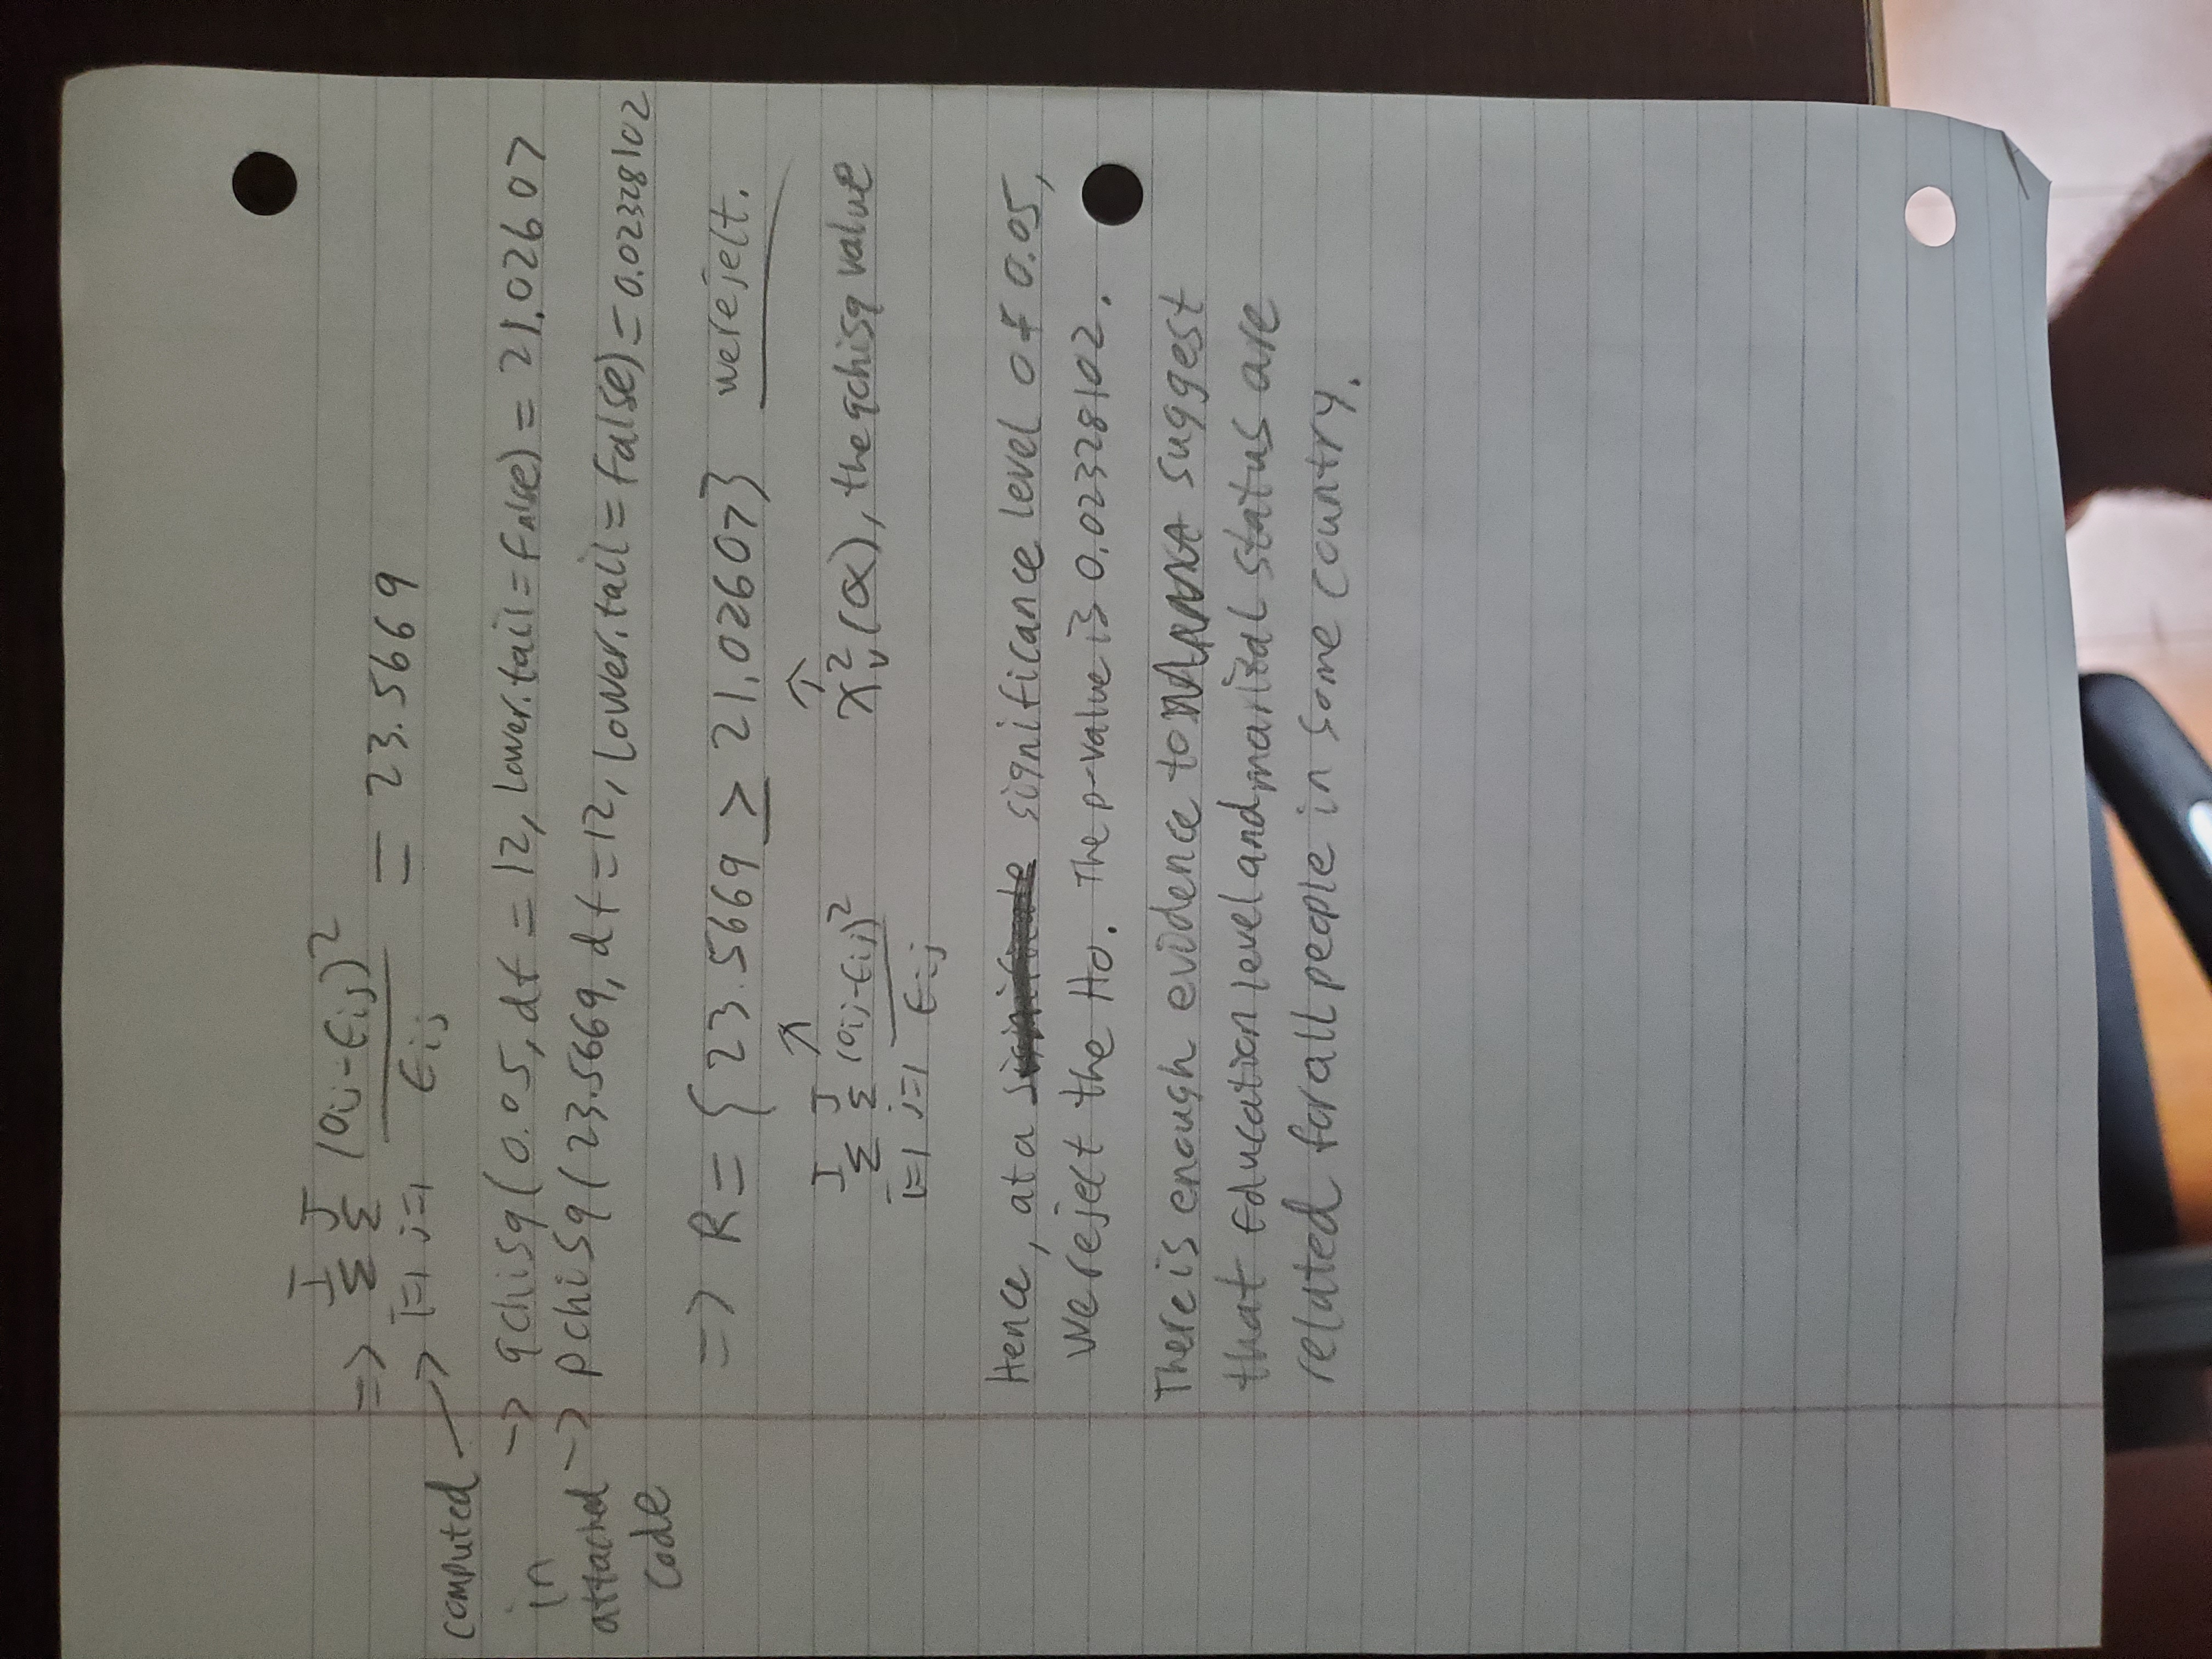 => I Σ i=1 J Σ j=1 (Oij-Eij)² / Eij = 23.5669
computed in attached code
→ qchisq(0.05, df = 12, lower.tail = False) = 21.02607
→ pchisq(23.5669, df = 12, lower.tail = False) = 0.02328102
=> R = {23.5669 ≥ 21.02607} we reject.
↑ ↑
I Σ i=1 J Σ j=1 (Oij-Eij)² / Eij χ²ᵥ(α), the qchisq value
Hence, at a significance level of 0.05,
we reject the H0. The p-value is 0.02328102.
There is enough evidence to suggest
that Education level and marital status are
related for all people in some country.